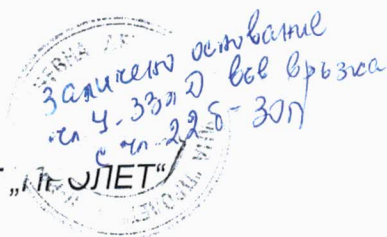 Заличено основание
чл 4. ЗЗЛД във връзка
с чл 22б - ЗОП
„ПРОЛЕТ“